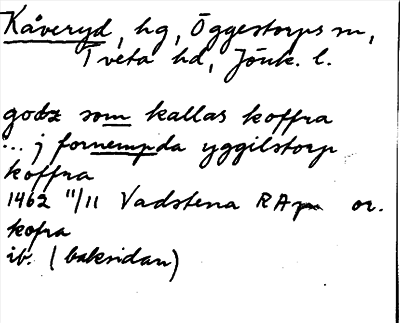 Kåveryd, hg, Öggestorps sn,
Tveta hd, Jönk. l.
godz som kallas koffra
... j fornempda yggilstorp
koffra
1462 11/11 Vadstena RAp or.
kofra
ib. (baksidan)